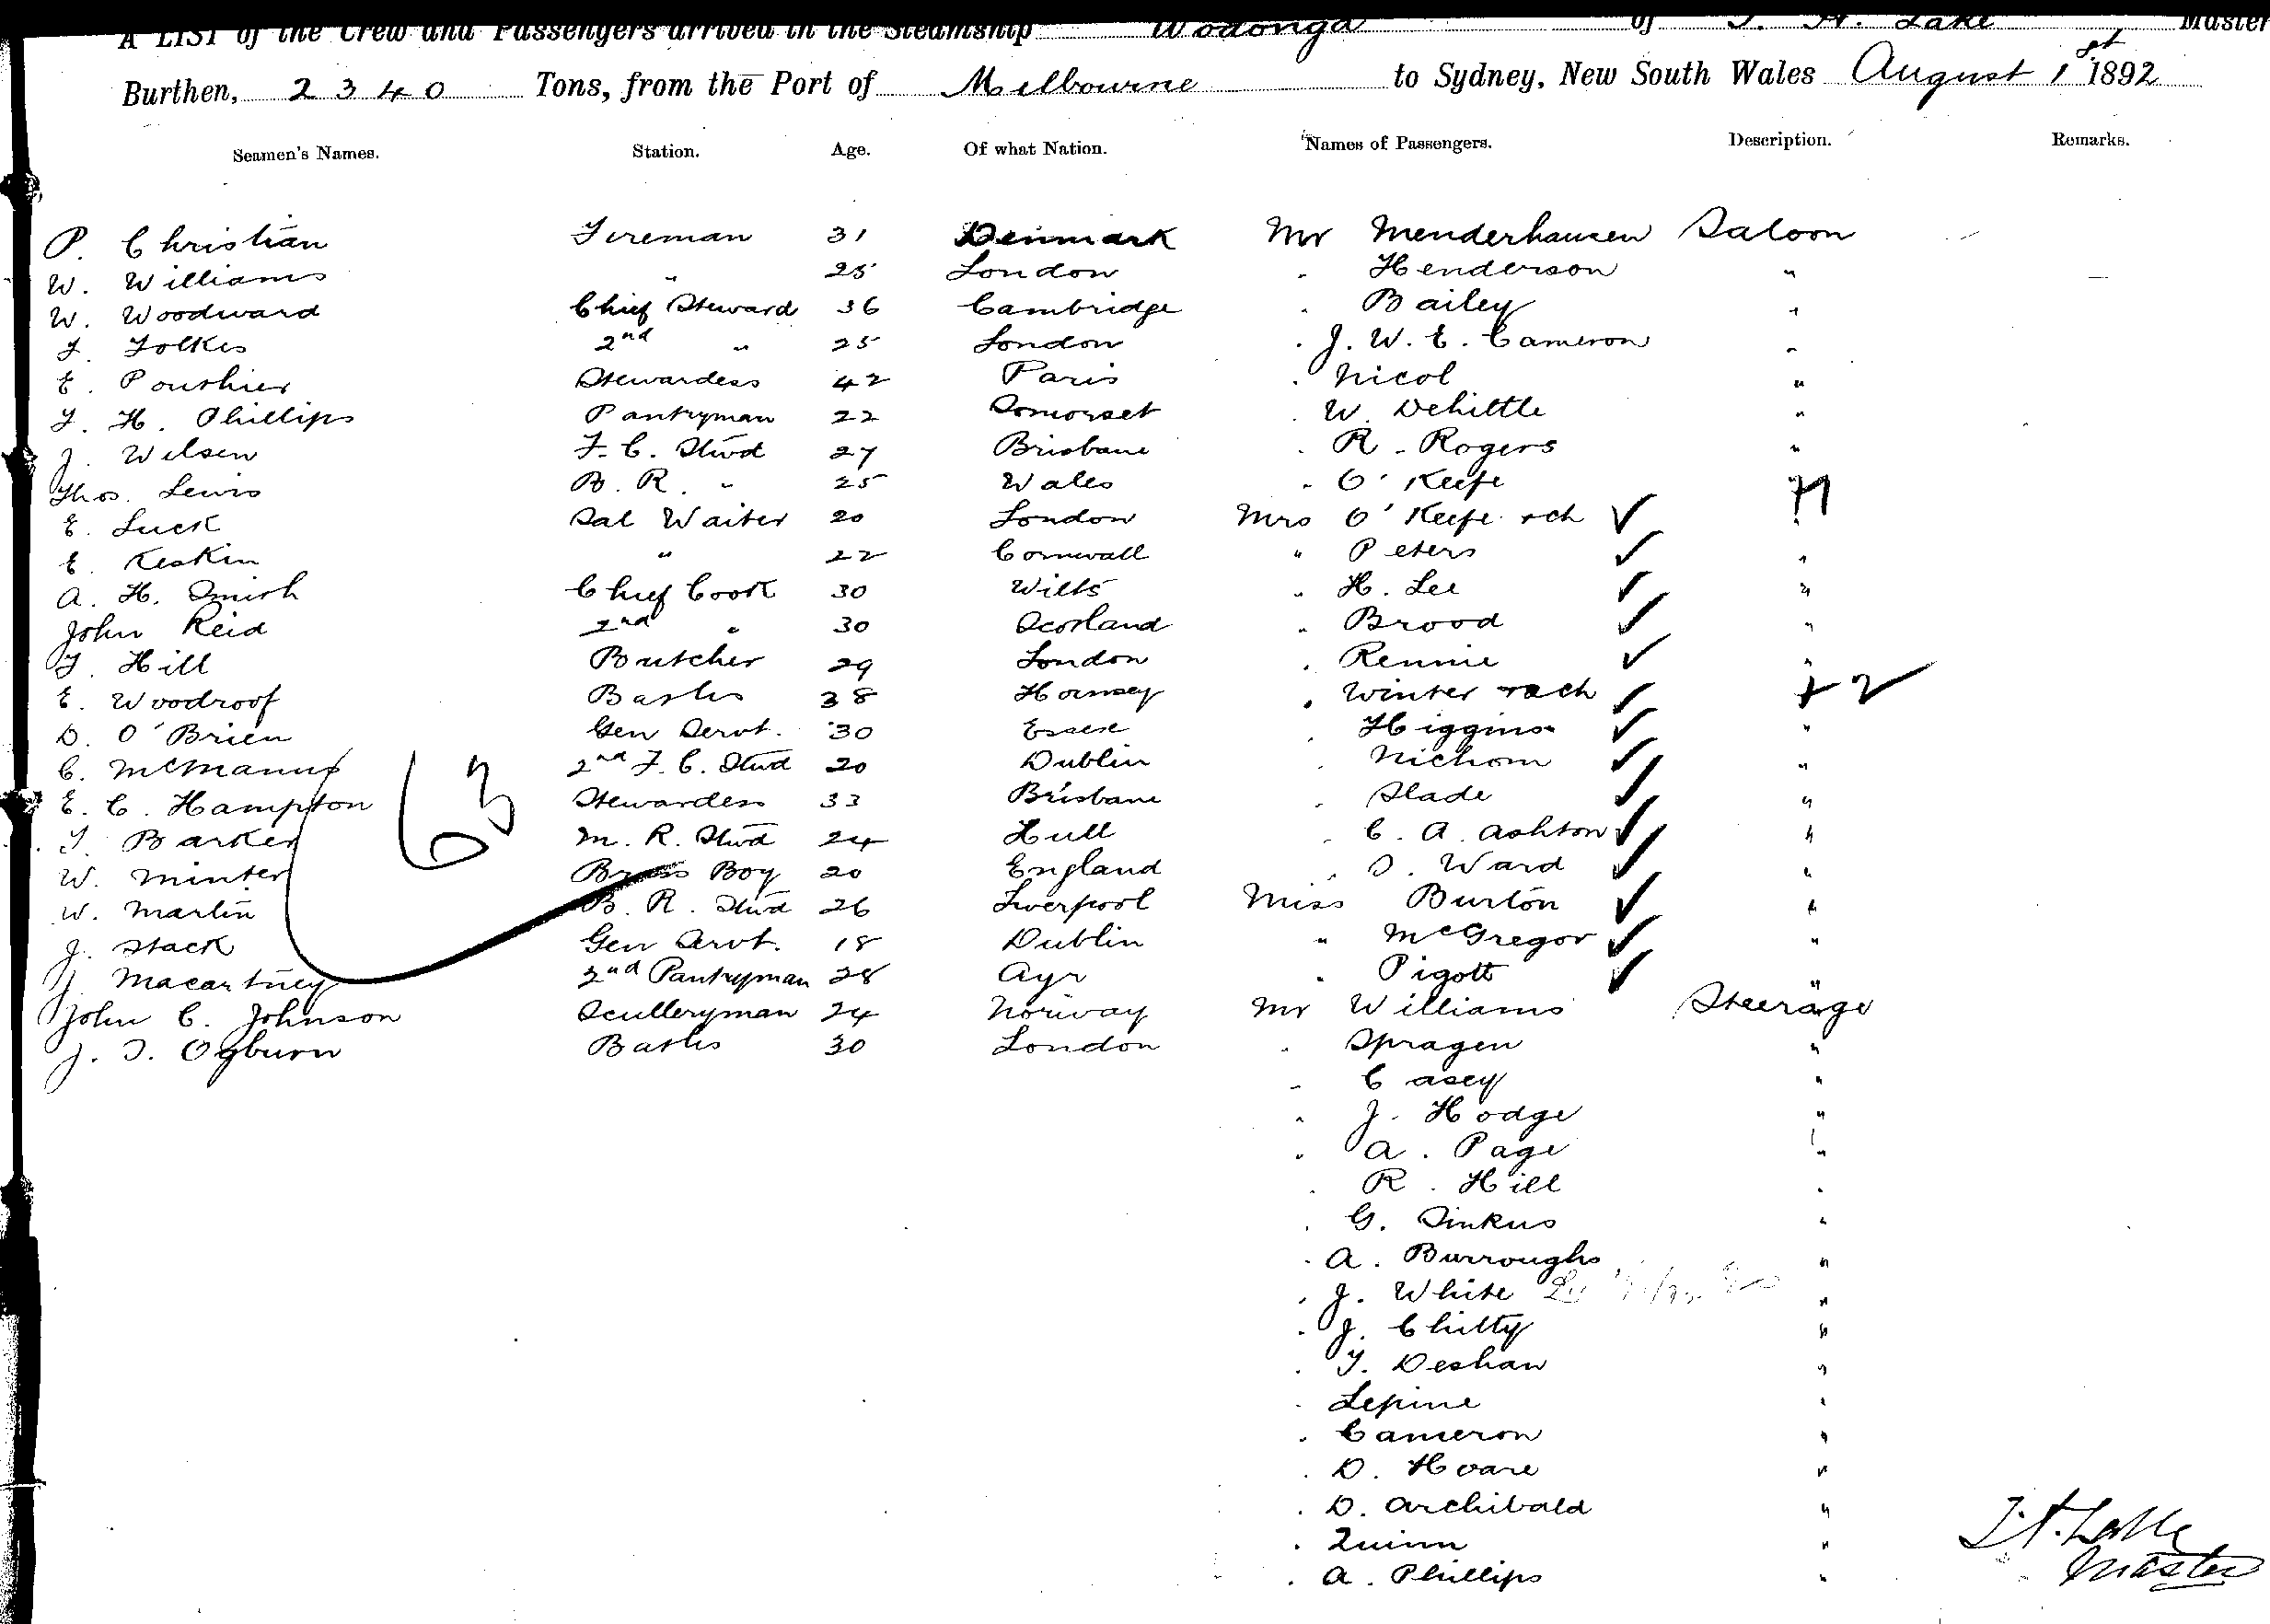 A LIST of the Crew and Passengers arrived in the Steamship Wodonga of T. A. Lake Master
Burthen, 2340 Tons, from the Port of Melbourne to Sydney, New South Wales August 1st 1892
Seamen's Names. Station. Age. Of what Nation. Names of Passengers. Description. Remarks.
P. Christian Fireman 31 Denmark Mr Menderhausen Saloon
W. Williams " 25 London " Henderson "
W. Woodward Chief Steward 36 Cambridge " Bailey "
F. Folkes 2nd " 25 London " J. W. E. Cameron "
E. Pouthier Stewardess 42 Paris " Nicol "
F. H. Phillips Pantryman 22 Somerset " W. Dehittle "
J. Wilsen F. C. Stwd 27 Brisbane " R. Rogers "
Thos. Lewis B. R. " 25 Wales " O'Keefe "
E. Luck Sal Waiter 20 London Mrs O'Keefe & ch ✓
E. Keskin " 22 Cornwall " Peters ✓ "
A. H. Smith Chief Cook 30 Wilts " H. Lee ✓ "
John Reid 2nd " 30 Scotland " Brood ✓ "
T. Hill Butcher 29 London " Rennie ✓ "
E. Woodroof Baths 38 Hornsey " Winter & ch ✓ + 2
D. O'Brien Gen Servt. 30 Essex " Higgins ✓ "
C. McManus 2nd F. C. Stwd 20 Dublin " Nichom ✓ "
E. C. Hampton Stewardess 33 Brisbane " Slade ✓ "
T. Barker M. R. Stwd 24 Hull " C. A. Ashton ✓ "
W. Minter Brass Boy 20 England " S. Ward ✓ "
W. Martin B. R. Stwd 26 Liverpool Miss Burton ✓ "
J. Stack Gen Servt. 18 Dublin " McGregor ✓ "
J. Macartney 2nd Pantryman 28 Ayr " Pigott ✓ "
John C. Johnson Sculleryman 24 Norway Mr Williams Steerage
J. S. Ogburn Baths 30 London " Spragen "
63
" Casey "
" J. Hodge "
" A. Page "
" R. Hill "
" G. Sinkus "
" A. Burroughs "
" J. White "
" J. Chitty "
" T. Deshan "
" Lepine "
" Cameron "
" D. Hoare "
" D. Archibald "
" Quinn "
" A. Phillips "
T. A. Lake
Master